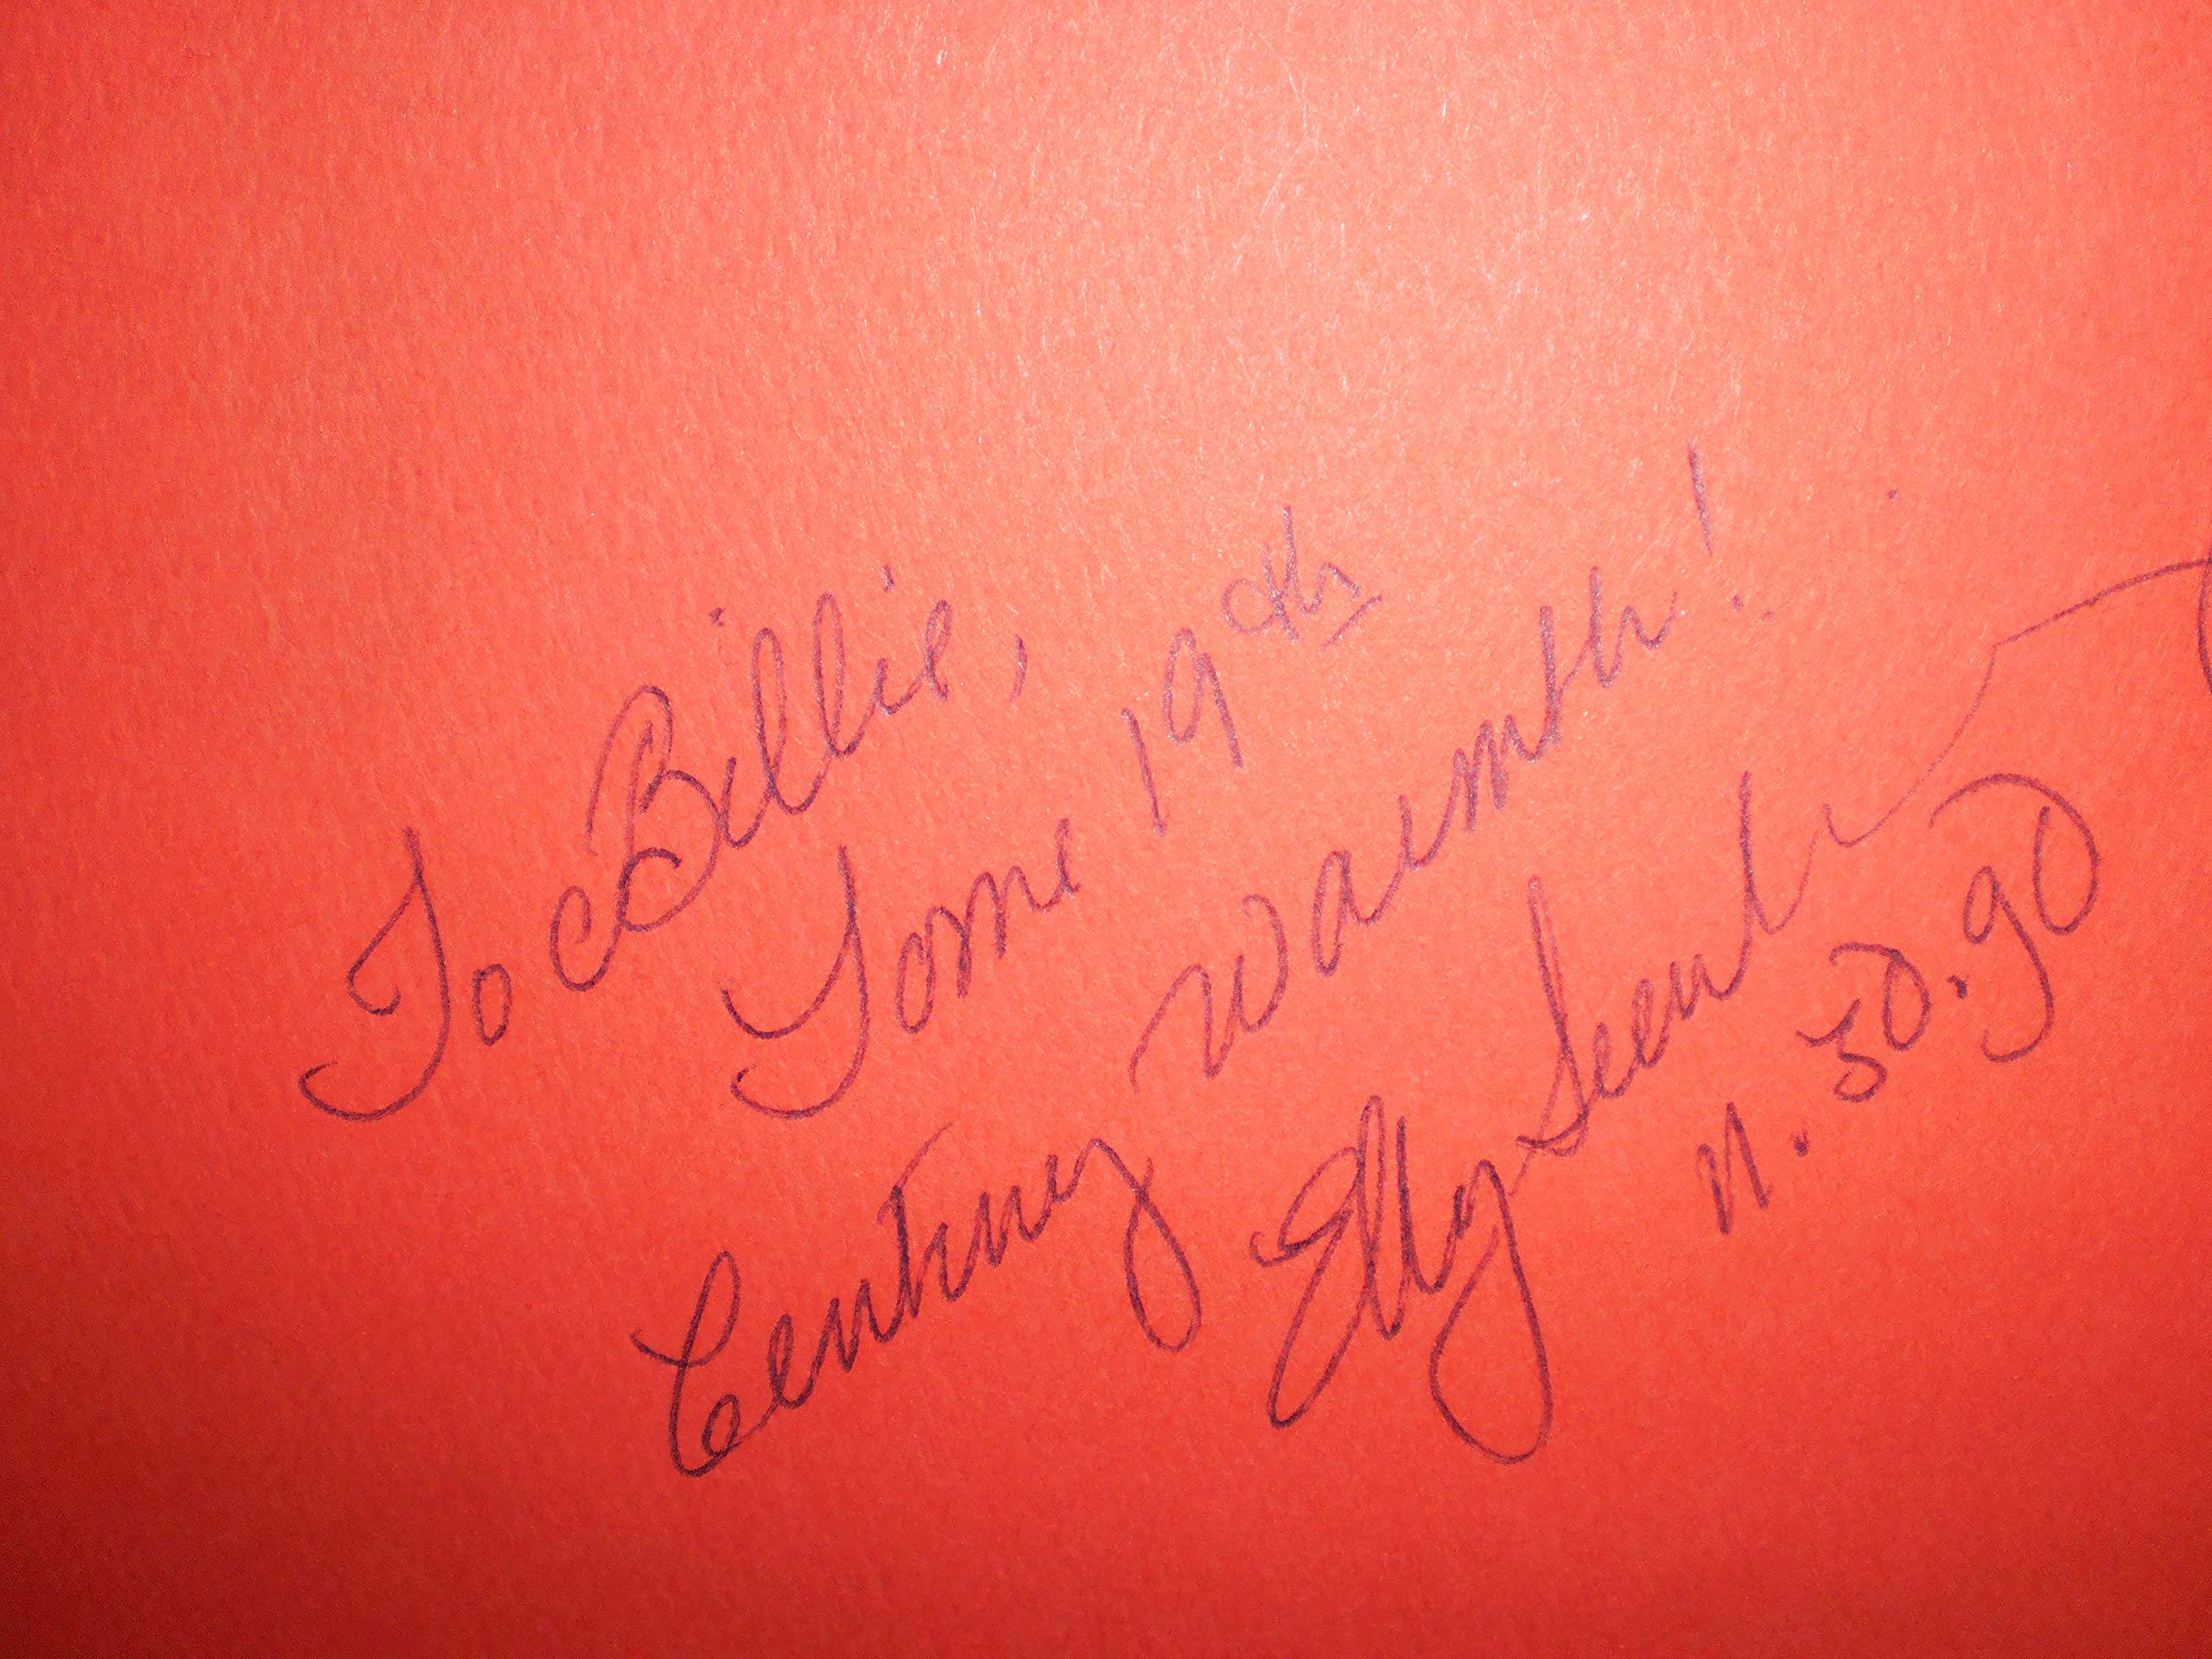 To Billie,
Some 19th
Century Warmth!
Elly
11.30.90